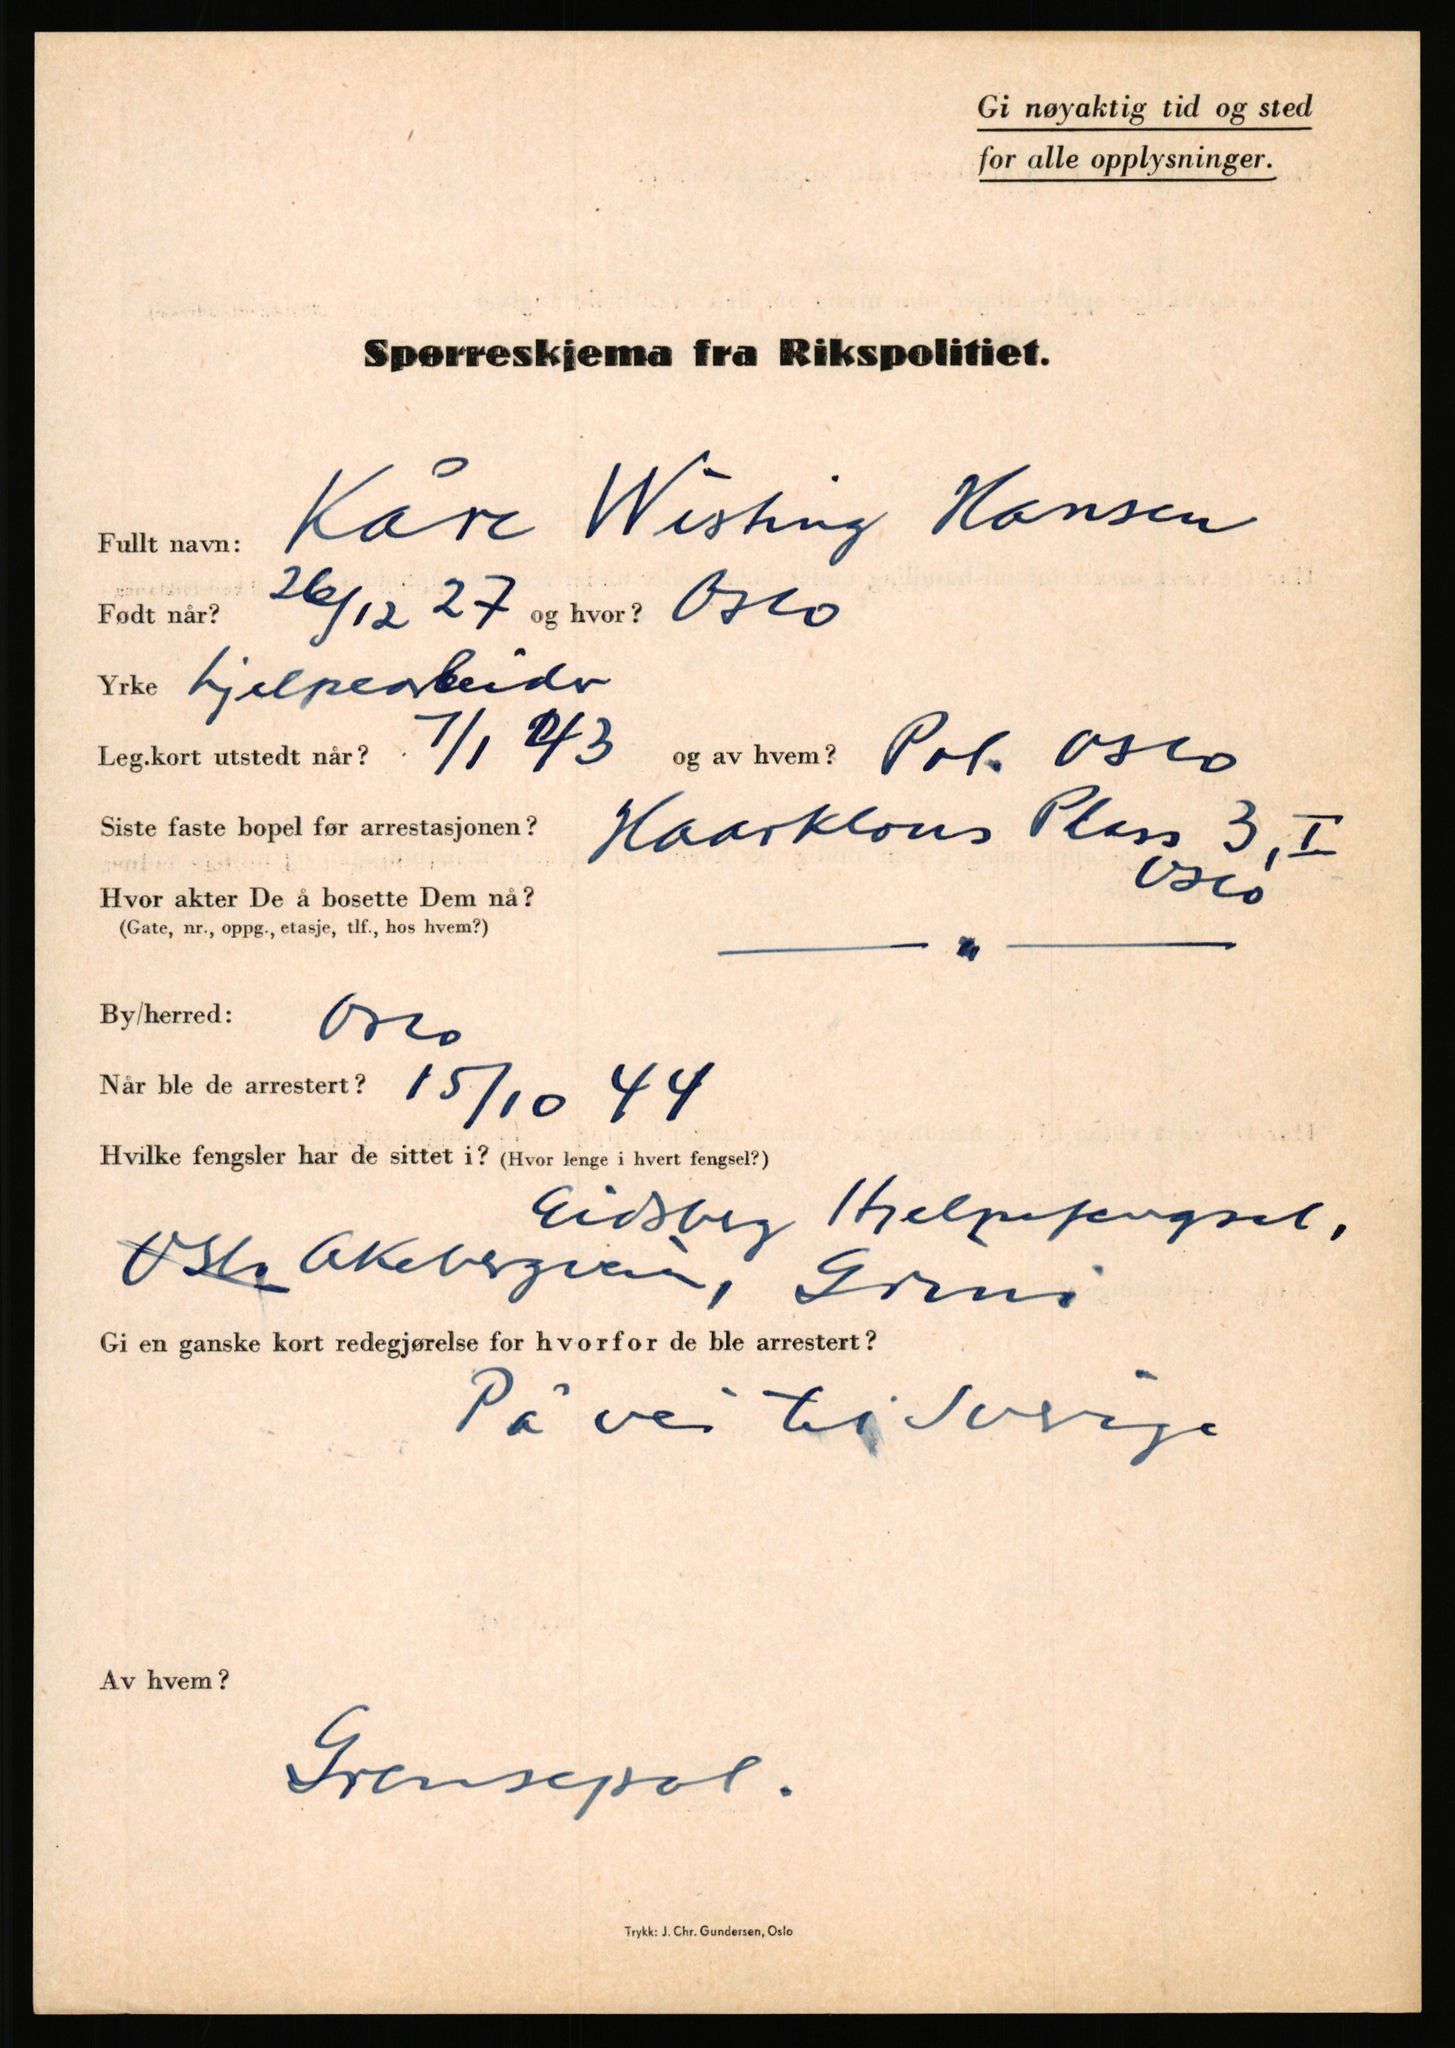 Gi nøyaktig tid og sted
for alle opplysninger.
Spørreskjema fra Rikspolitiet.
Fullt navn: Kåre Wisting Hansen
Født når? 26/12 27 og hvor? Oslo
Yrke hjelpearbeider
Leg.kort utstedt når? 7/1 43 og av hvem? Pol. Oslo
Siste faste bopel før arrestasjonen? Haarklous Plass 3, I
Oslo
Hvor akter De å bosette Dem nå?
(Gate, nr., oppg., etasje, tlf., hos hvem?) — " —
By/herred: Oslo
Når ble de arrestert? 15/10 44
Hvilke fengsler har de sittet i? (Hvor lenge i hvert fengsel?)
Eidsberg Hjelpefengsel,
Oslo Akebergveien, Grini
Gi en ganske kort redegjørelse for hvorfor de ble arrestert?
På vei til Sverige
Av hvem?
Grensepol.
Trykk: J. Chr. Gundersen, Oslo